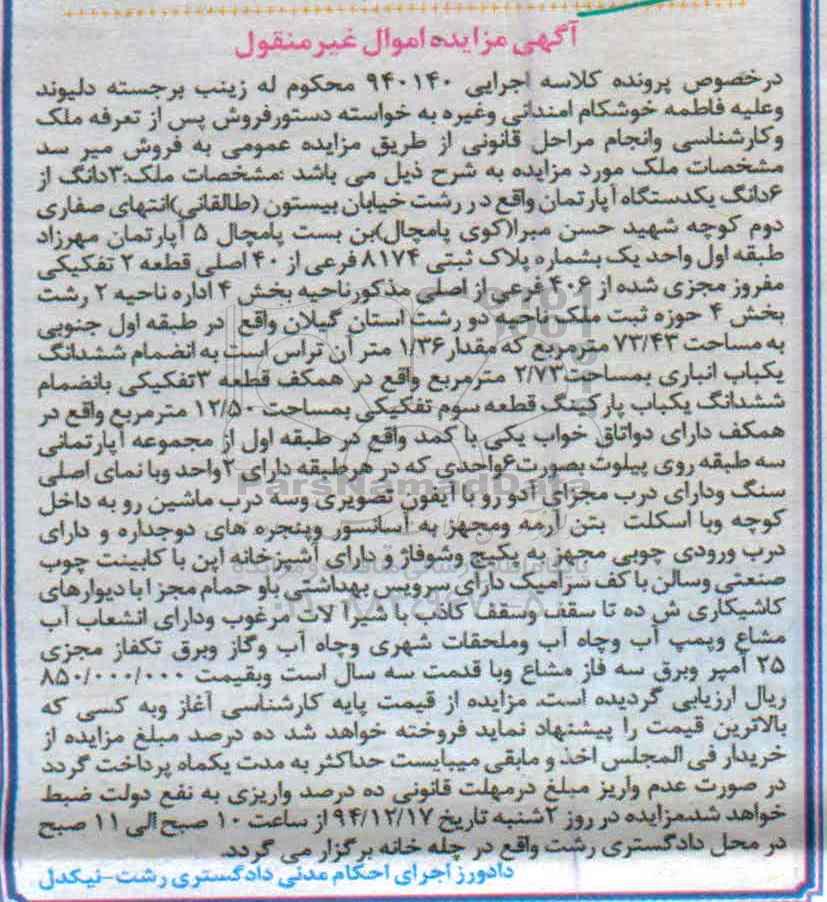 آگهی مزایده اموال غیرمنقول
درخصوص پرونده کلاسه اجرایی ۹۴۰۱۴۰ محکوم له زینب برجسته دلیوند
وعلیه فاطمه خوشکام امندانی وغیره به خواسته دستورفروش پس از تعرفه ملک
وکارشناسی وانجام مراحل قانونی از طریق مزایده عمومی به فروش میر سد
مشخصات ملک مورد مزایده به شرح ذیل می باشد :مشخصات ملک:۳دانگ از
۶دانگ یکدستگاه آپارتمان واقع در رشت خیابان بیستون (طالقانی)انتهای صفاری
دوم کوچه شهید حسن مبرا(کوی پامچال)بن بست پامچال ۵ آپارتمان مهرزاد
طبقه اول واحد یک بشماره پلاک ثبتی ۸۱۷۴ فرعی از ۴۰ اصلی قطعه ۲ تفکیکی
مفروز مجزی شده از ۴۰۶ فرعی از اصلی مذکورناحیه بخش ۴ اداره ناحیه ۲ رشت
بخش ۴ حوزه ثبت ملک ناحیه دو رشت استان گیلان واقع در طبقه اول جنوبی
به مساحت ۷۳/۴۳ مترمربع که مقدار ۱/۳۶ متر آن تراس است به انضمام ششدانگ
یکباب انباری بمساحت۲/۷۳ مترمربع واقع در همکف قطعه ۳تفکیکی بانضمام
ششدانگ یکباب پارکینگ قطعه سوم تفکیکی بمساحت ۱۲/۵۰ مترمربع واقع در
همکف دارای دواتاق خواب یکی با کمد واقع در طبقه اول از مجموعه آپارتمانی
سه طبقه روی پیلوت بصورت۶واحدی که در هرطبقه دارای ۲واحد وبا نمای اصلی
سنگ ودارای درب مجزای آدو رو با آیفون تصویری وسه درب ماشین رو به داخل
کوچه وبا اسکلت بتن آرمه ومجهز به آسانسور وپنجره های دوجداره و دارای
درب ورودی چوبی مجهز به پکیج وشوفاژ و دارای آشپزخانه اپن با کابینت چوب
صنعتی وسالن با کف سرامیک دارای سرویس بهداشتی باو حمام مجز ا با دیوارهای
کاشیکاری ش ده تا سقف وسقف کاذب با شیرآ لات مرغوب ودارای انشعاب آب
مشاع وپمپ آب وچاه آب وملحقات شهری وچاه آب وگاز وبرق تکفاز مجزی
۲۵ آمپر وبرق سه فاز مشاع وبا قدمت سه سال است وبقیمت ۸۵۰/۰۰۰/۰۰۰
ریال ارزیابی گردیده است. مزایده از قیمت پایه کارشناسی آغاز وبه کسی که
بالاترین قیمت را پیشنهاد نماید فروخته خواهد شد ده درصد مبلغ مزایده از
خریدار فی المجلس اخذ و مابقی میبایست حداکثر به مدت یکماه پرداخت گردد
در صورت عدم واریز مبلغ درمهلت قانونی ده درصد واریزی به نفع دولت ضبط
خواهد شد.مزایده در روز ۲شنبه تاریخ ۹۴/۱۲/۱۷ از ساعت ۱۰ صبح الی ۱۱ صبح
در محل دادگستری رشت واقع در چله خانه برگزار می گردد.
دادورز اجرای احکام مدنی دادگستری رشت-نیکدل
ParsNamadData